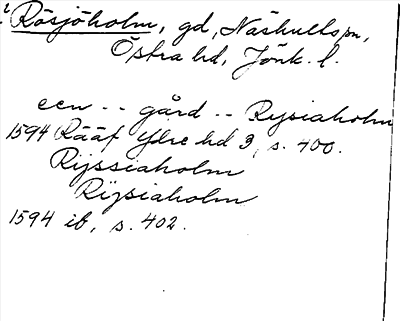 Rösjöholm, gd, Näshults sn,
Östra hd, Jönk. l.
een - - gård - - Rysiaholm
1594 Rääf Ydre hd 3, s. 400.
Rijssiaholm
Rÿsiaholm
1594 ib, s. 402.